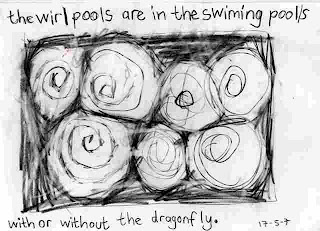 the wirlpools are in the swiming pool/s
with or without the dragonfly.
17-5-7